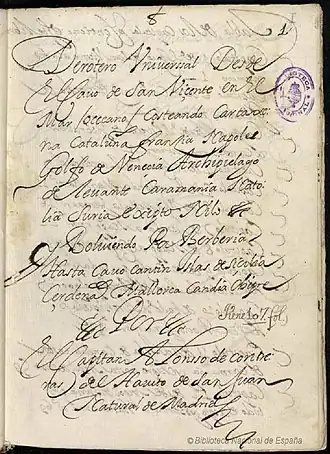 8
1
Derotero Universal Desde
El Cavo de San Vicente en El
Mar occeano / Costeando Cartaxe
na Cataluña françia Napoles
Golfo de Venecia Archipielago
de levante Caramania Nato
lia Suria Exipto Nilo &c
y Bolviendo Por Berberia
Hasta cavo cantin Islas de Siçilia
Çerdeña Mallorca Candia chipre
&c Por &c
tiene 107 fol.
El Capitan Alonso de contre
ras del Havito de San Juan
Natural de Madrid
© Biblioteca Nacional de España